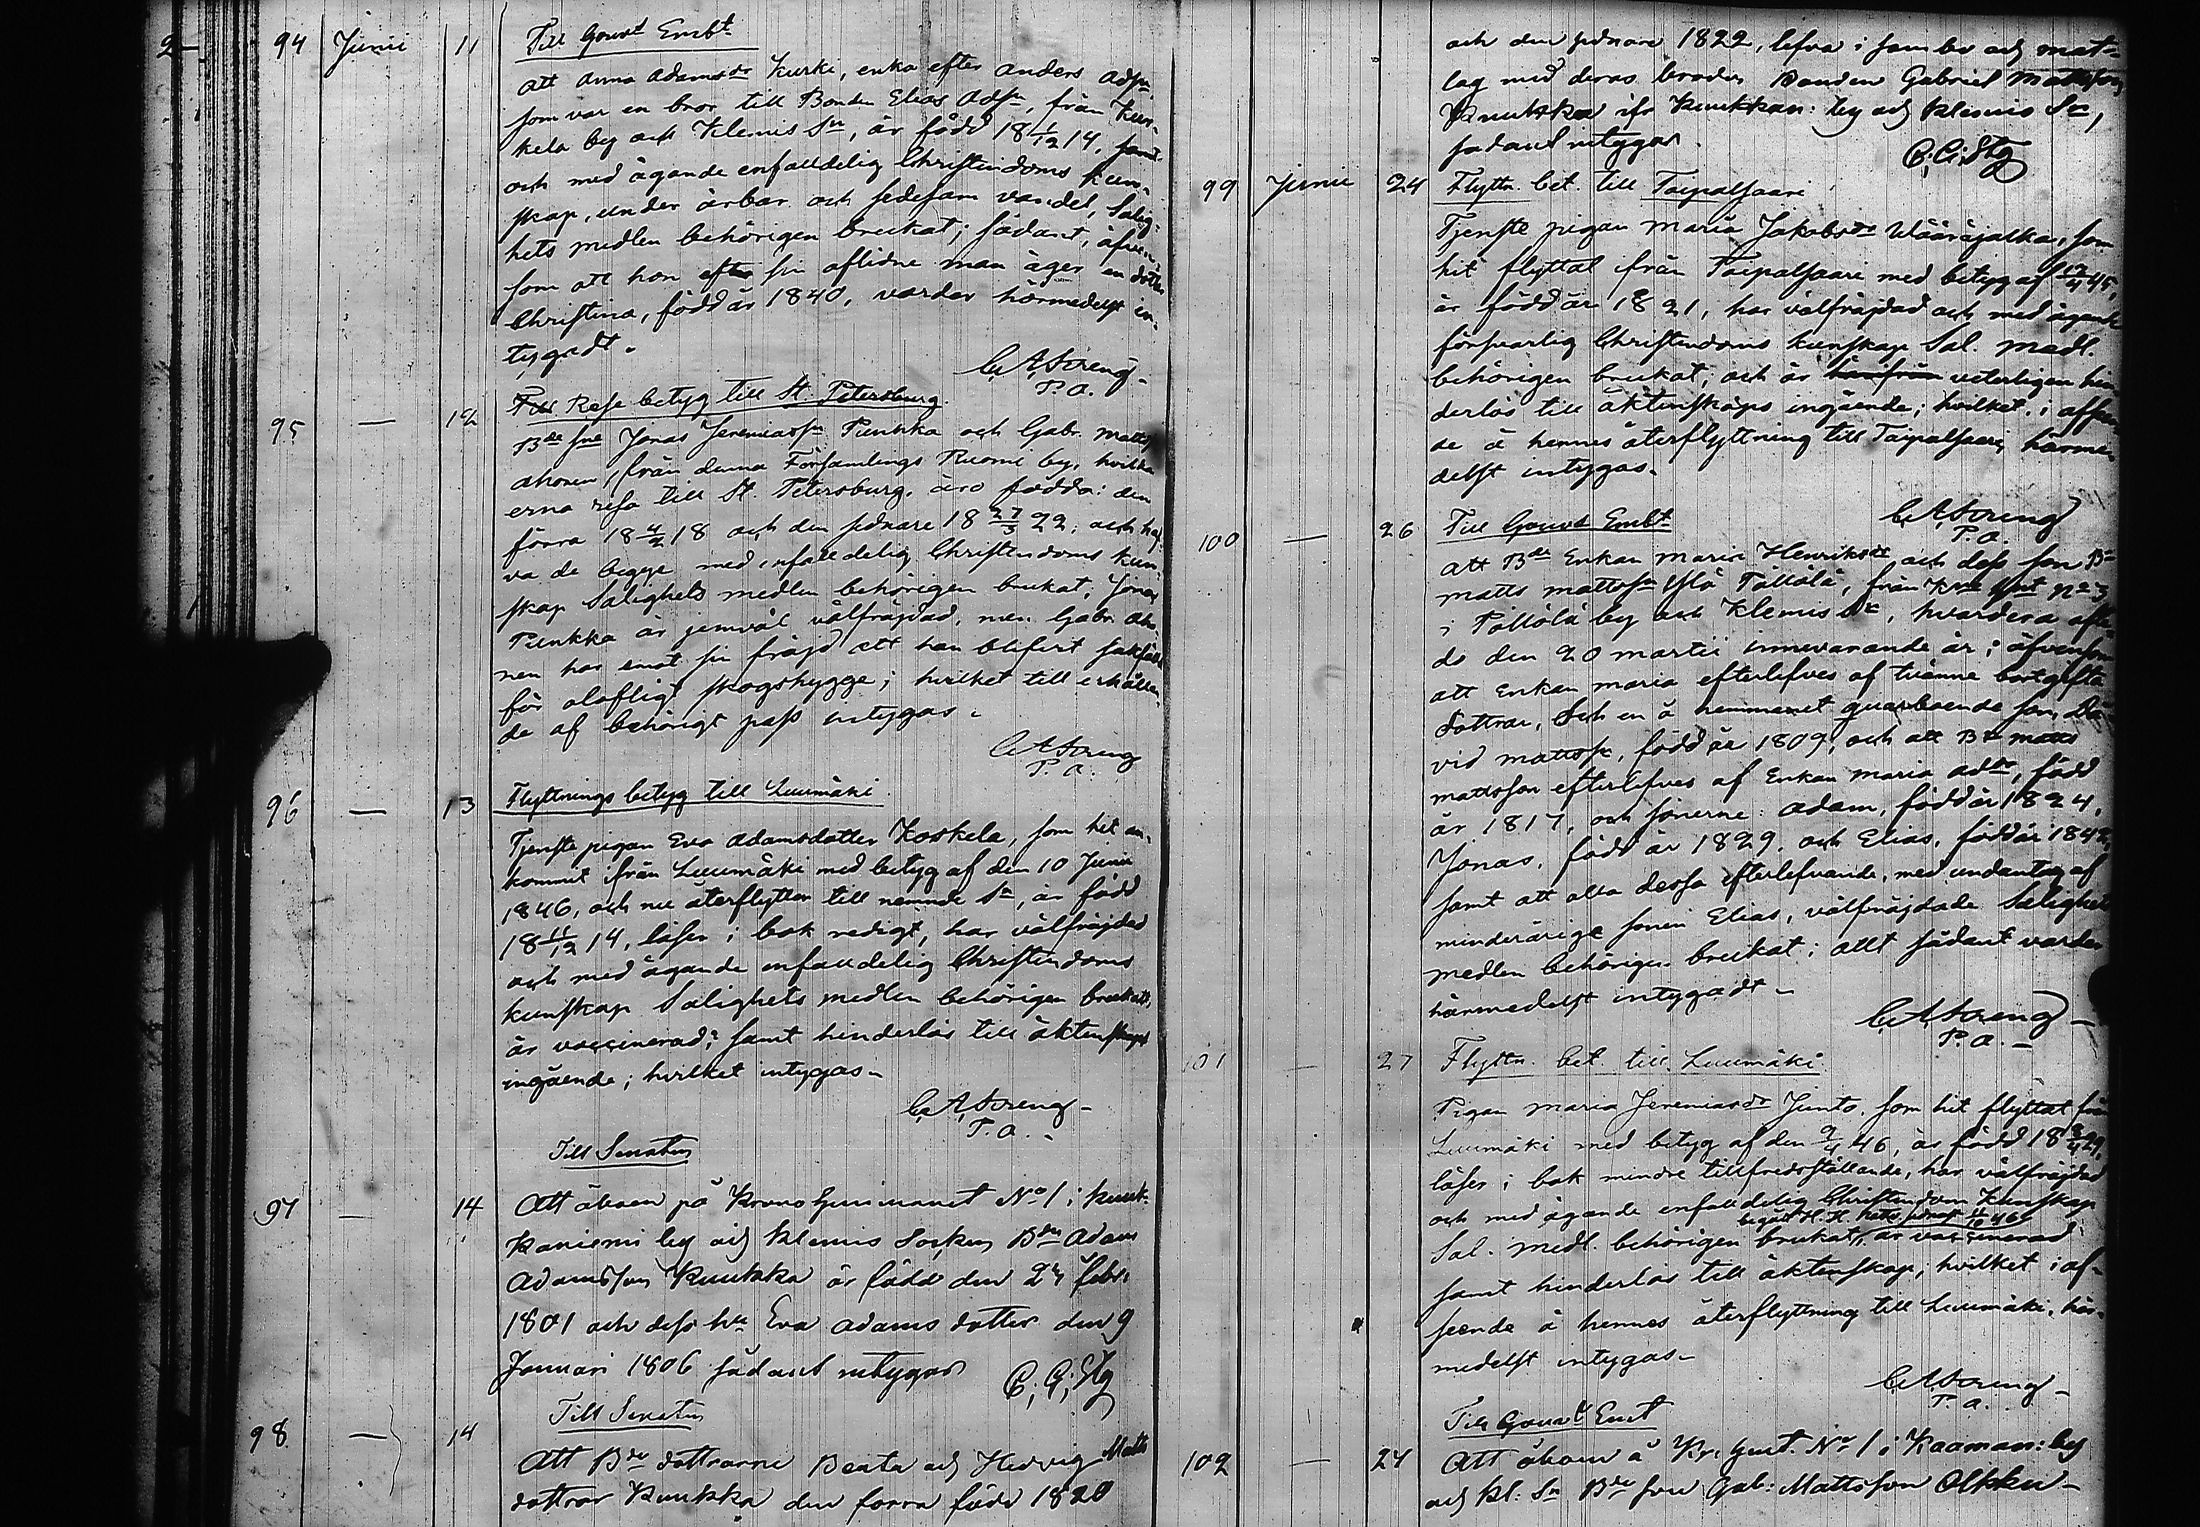 2
94 Junii 11 Till Gouvts Embt
Att Anna Adamsdr Kurki, enka efter Anders Adsn,
som var en bror till Bonden Elias Adsn, från Kur-
kela by och Klemis Sn, är född 18 1/12 14, samt
och med ägande enfalldelig Christendoms kun-
skap, under ärbar och sedesam vandel, Salig-
hets medlen behörigen brukat; sådant, äfven-
som att hon efter sin aflidne man äger en dotter
Christina, född år 1840, varder härmedelst in-
tygadt.
C. A. Streng
P. a.
95 — 12 Till Rese betyg till St. Petersburg
Bde sne Jonas Jeremiassn Punkka och Gabr. Matts
Ahonen, från denna Församlings Ruomi by, hvilka
erna resa till St. Petersburg, äro födda: den
förra 18 4/2 18 och den sednare 18 27/3 22; och haf-
va de begge med enfalldelig Christendoms kun-
skap Salighets medlen behörigen brukat, Jonas
Punkka är jemväl välfräjdad, men Gabr. Aho-
nen har emot sin fräjd att han blifvit sakfälld
för olofligt skogshygge; hvilket till erhållan-
de af behörigt pass intygas.
C. A. Streng
P. a.
96 — 13 Flyttnings betyg till Luumäki
Tjenste pigan Eva Adamsdotter Koskela, som hit an-
kommit från Luumäki med betyg af den 10 Junii
1846, och nu återflyttar till nämnde Sn, är född
18 11/12 14, läser i bok redigt, har välfräjdad
och med ägande enfalldelig Christendoms
kunskap Salighets medlen behörigen brukat,
är vaccinerad; samt hinderlös till äktenskaps
ingående; hvilket intygas.
C. A. Streng
P. a.
Till Senaten
97 — 14 Att åboen på Krono Hemmanet No 1 i Kuuk-
kaniemi by och Klemis Socken Bdn Adam
Adamsson Kuukka är född den 24 Febr.
1801 och dess hu Eva Adams dotter den 9
Januari 1806 sådant intygas C. G. Stg
Till Senaten
98 — 14 Att Bde döttrarne Beata och Hedvig Matts
döttrar Kuukka den förra född 1820
och den sednare 1822, lefva i sambo och mat-
lag med deras broder Bonden Gabriel Mattsson
Kuukka ifr Kuukkan: by och Klemis Sn,
sådant intygas.
C. G. Stg
99 Junii 24 Flyttn. bet. till Taipalsaari
Tjenste pigan Maria Jakobsdr Wääräjalka, som
hit flyttat från Taipalsaari med betyg af 12/4 45,
är född år 1821, har välfräjdad och med ägande
försvarlig Christendoms kunskap Sal. medl.
behörigen brukat; och är härifrån veterligen hin-
derlös till äktenskaps ingående; hvilket, i afseen-
de å hennes återflyttning till Taipalsaari, härme-
delst intygas.
C. A. Streng
P. a.
100 — 26 Till Gouvts Embt
Att Bde Enkan Maria Henriksdr och dess son Bn
Matts Mattssn Töllölä, från Krno Hmt No 3
i Töllölä by och Klemis Sn, hvardera afli-
do den 20 Martii innevarande år; äfvensom
att Enkan Maria efterlefves af tvänne bortgifta
döttrar, och en å hemmanet quarboende son, Da-
vid Mattssn, född år 1809, och att Bn Matts
Mattsson efterlefves af Enkan Maria Addr, född
år 1817, och sönerne: Adam, född år 1824,
Jonas, född år 1829, och Elias, född år 1842,
samt att alla dessa efterlefvande, med undantag af
minderårige sonen Elias, välfräjdade Salighets
medlen behörigen brukat; allt sådant varder
härmedelst intygadt.
C. A. Streng
P. a.
101 — 27 Flyttn. bet. till Luumäki
Pigan Maria Jeremiasdr Junto, som hit flyttat från
Luumäki med betyg af den 9/4 46, är född 18 8/4 29,
läser i bok mindre tillfredsställande, har välfräjdad
och med ägande enfalldelig Christendoms kunskap
begått H. H. Nattv. sednast 11/10 46
Sal. medl. behörigen brukat, är vaccinerad
samt hinderlös till äktenskap; hvilket i af-
seende å hennes återflyttning till Luumäki, här-
medelst intygas.
C. A. Streng
P. a.
Till Gouvts Emt
102 — 27 Att åboen å Kr. Hmt. No 1 i Kaaman: by
och Kl: Sn Bde son Gab: Mattsson Olkku-